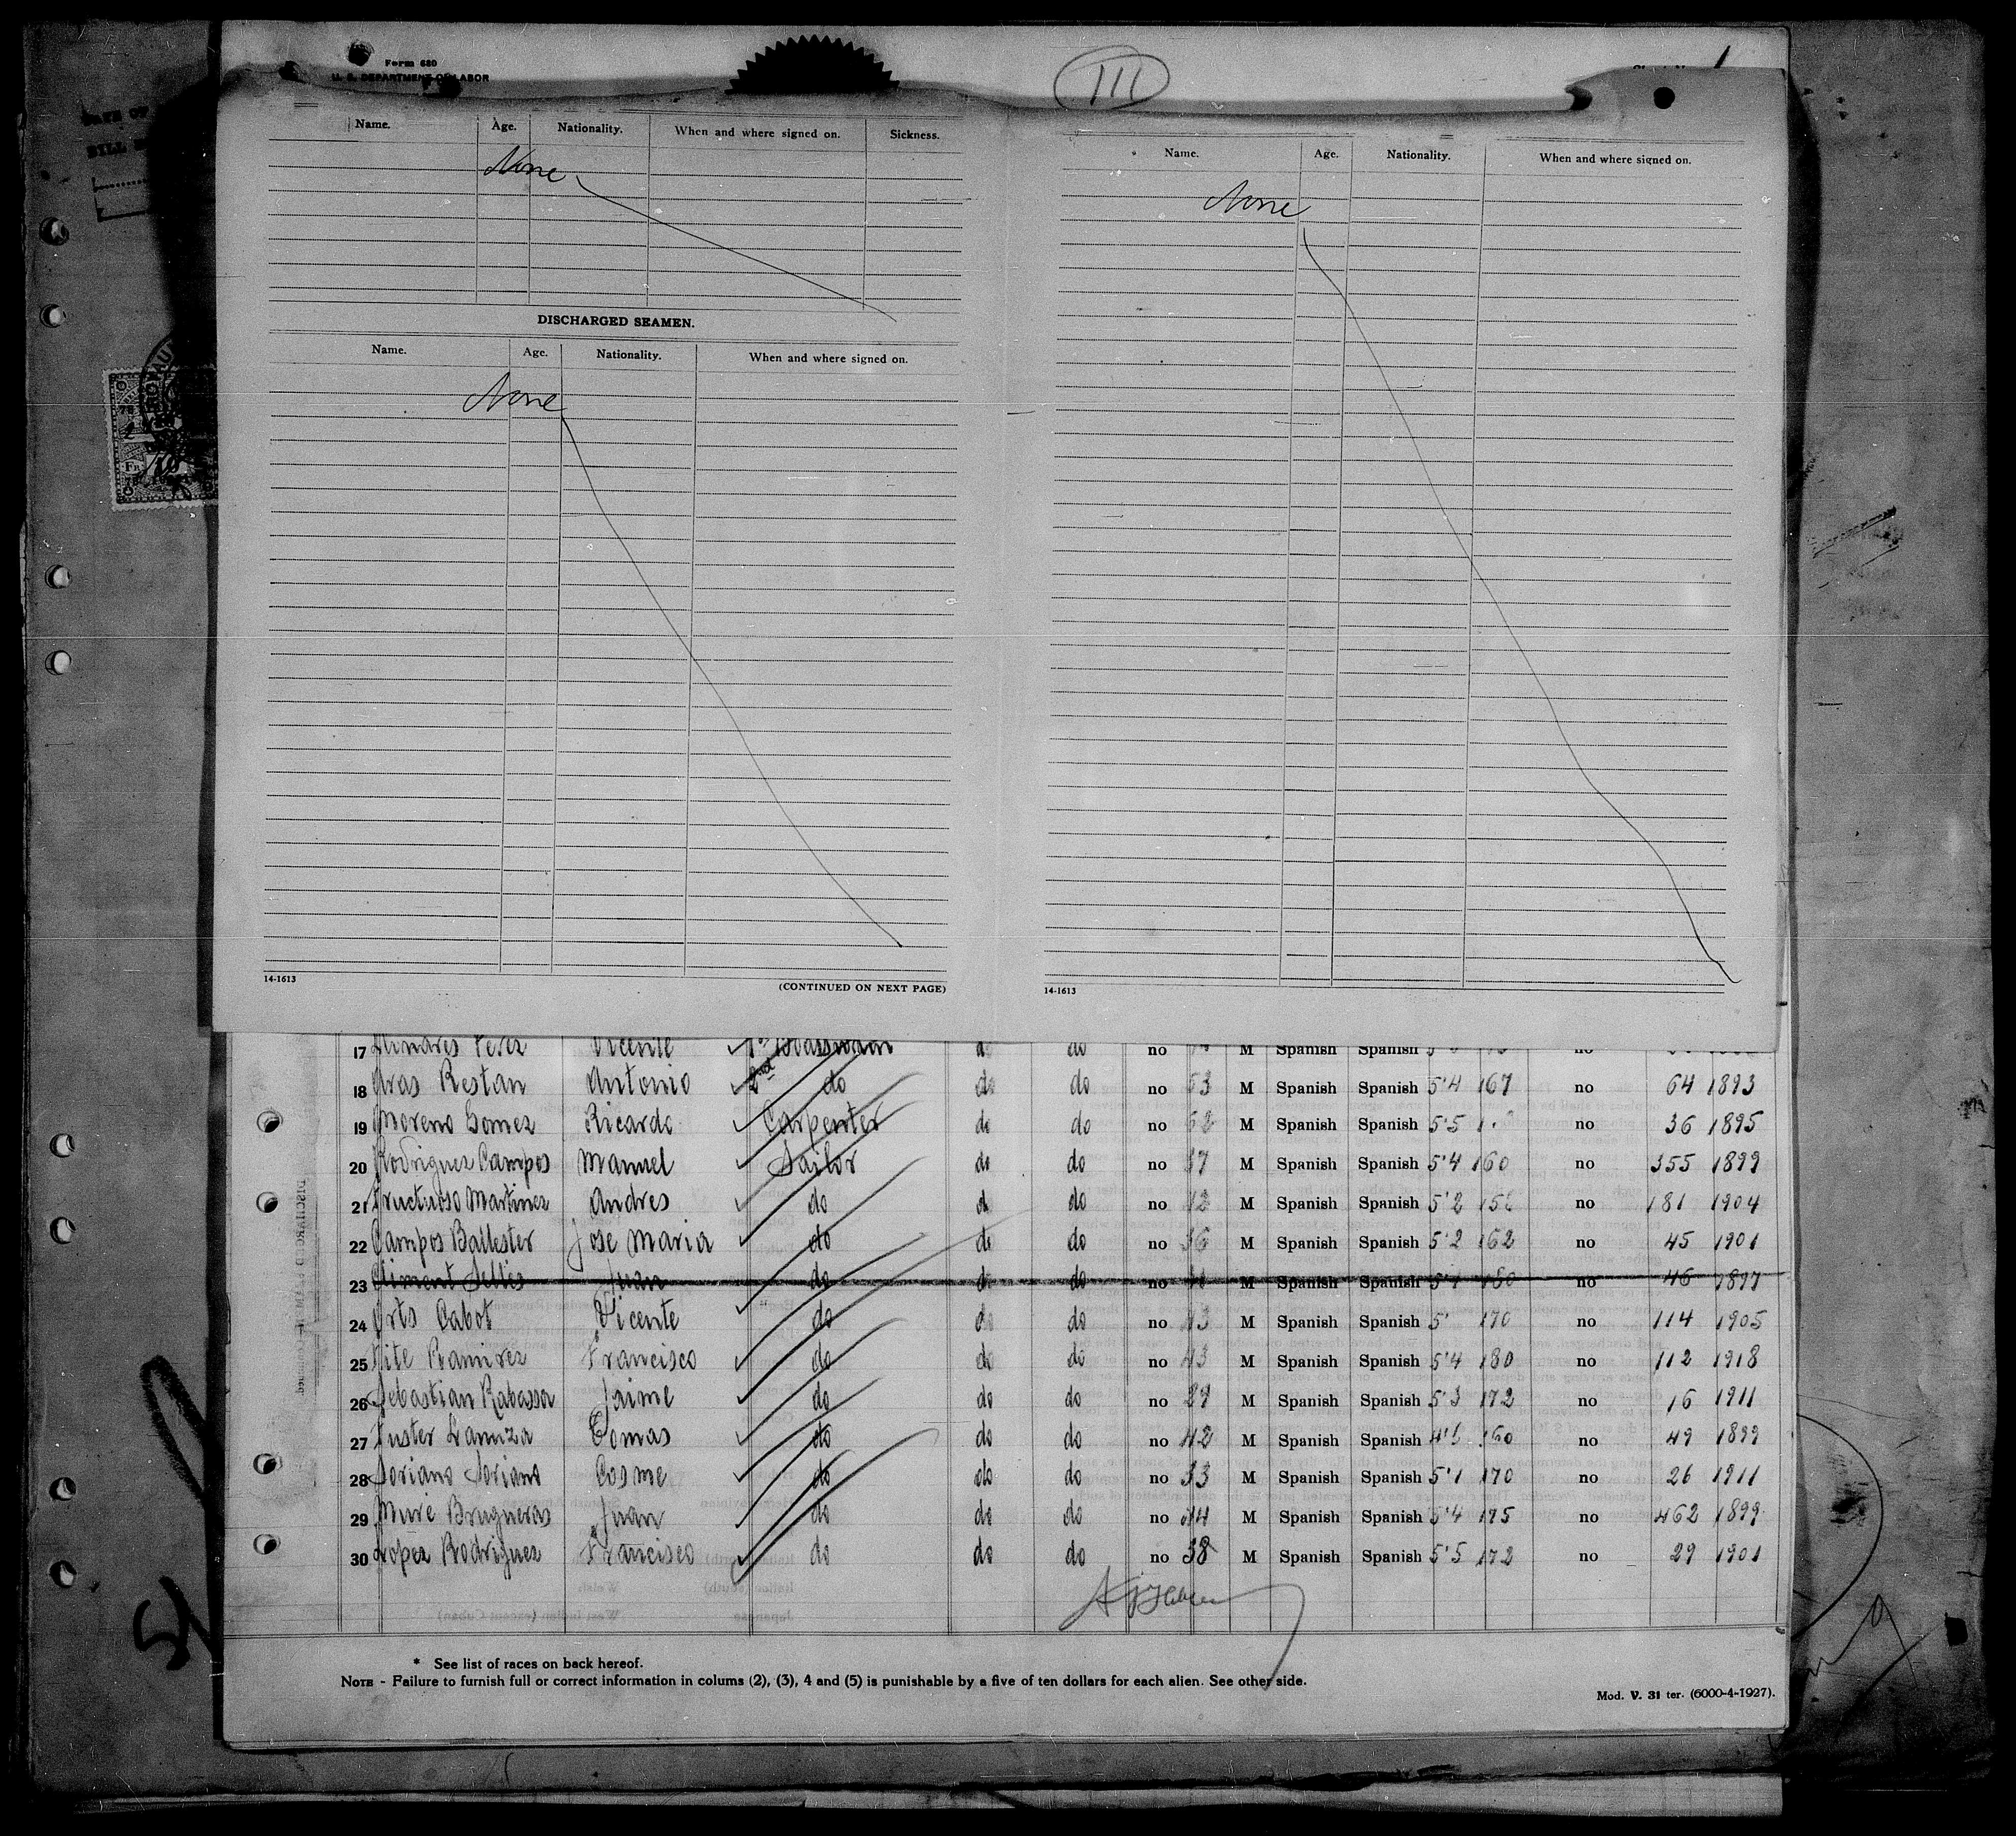 Form 680
U. S. DEPARTMENT OF LABOR
III
Name. Age. Nationality. When and where signed on. Sickness.
None
DISCHARGED SEAMEN.
Name. Age. Nationality. When and where signed on.
None
14-1613
(CONTINUED ON NEXT PAGE)
Name. Age. Nationality. When and where signed on.
None
14-1613
17 Perez Vicente do no M Spanish Spanish no
18 Aras Restan Antonio 2nd do do do no 53 M Spanish Spanish 5'4 167 no 64 1893
19 Moreno Gomez Ricardo Carpenter do do no 52 M Spanish Spanish 5'5 no 36 1895
20 Rodriguez Campos Manuel Sailor do do no 37 M Spanish Spanish 5'4 160 no 355 1899
21 Fructuoso Martinez Andres do do do no 42 M Spanish Spanish 5'2 no 181 1904
22 Campos Ballester Jose Maria do do do no 36 M Spanish Spanish 5'2 162 no 45 1901
23 Climent Selles Juan do do do no M Spanish Spanish no 46 1897
24 Orts Cabot Vicente do do do no 43 M Spanish Spanish 170 no 114 1905
25 Ramirez Francisco do do do no 43 M Spanish Spanish 5'4 180 no 112 1918
26 Sebastian Rabassa Jaime do do do no 29 M Spanish Spanish 5'3 172 no 16 1911
27 Fuster Tomas do do do no 42 M Spanish Spanish 160 no 49 1899
28 Soriano Soriano Cosme do do do no 33 M Spanish Spanish 5'1 170 no 26 1911
29 Mure Brugueras Juan do do do no 44 M Spanish Spanish 5'4 175 no 462 1899
30 Lopez Rodriguez Francisco do do do no 38 M Spanish Spanish 5'5 172 no 29 1901
* See list of races on back hereof.
NOTE - Failure to furnish full or correct information in colums (2), (3), 4 and (5) is punishable by a five of ten dollars for each alien. See other side.
Mod. V. 31 ter. (6000-4-1927).